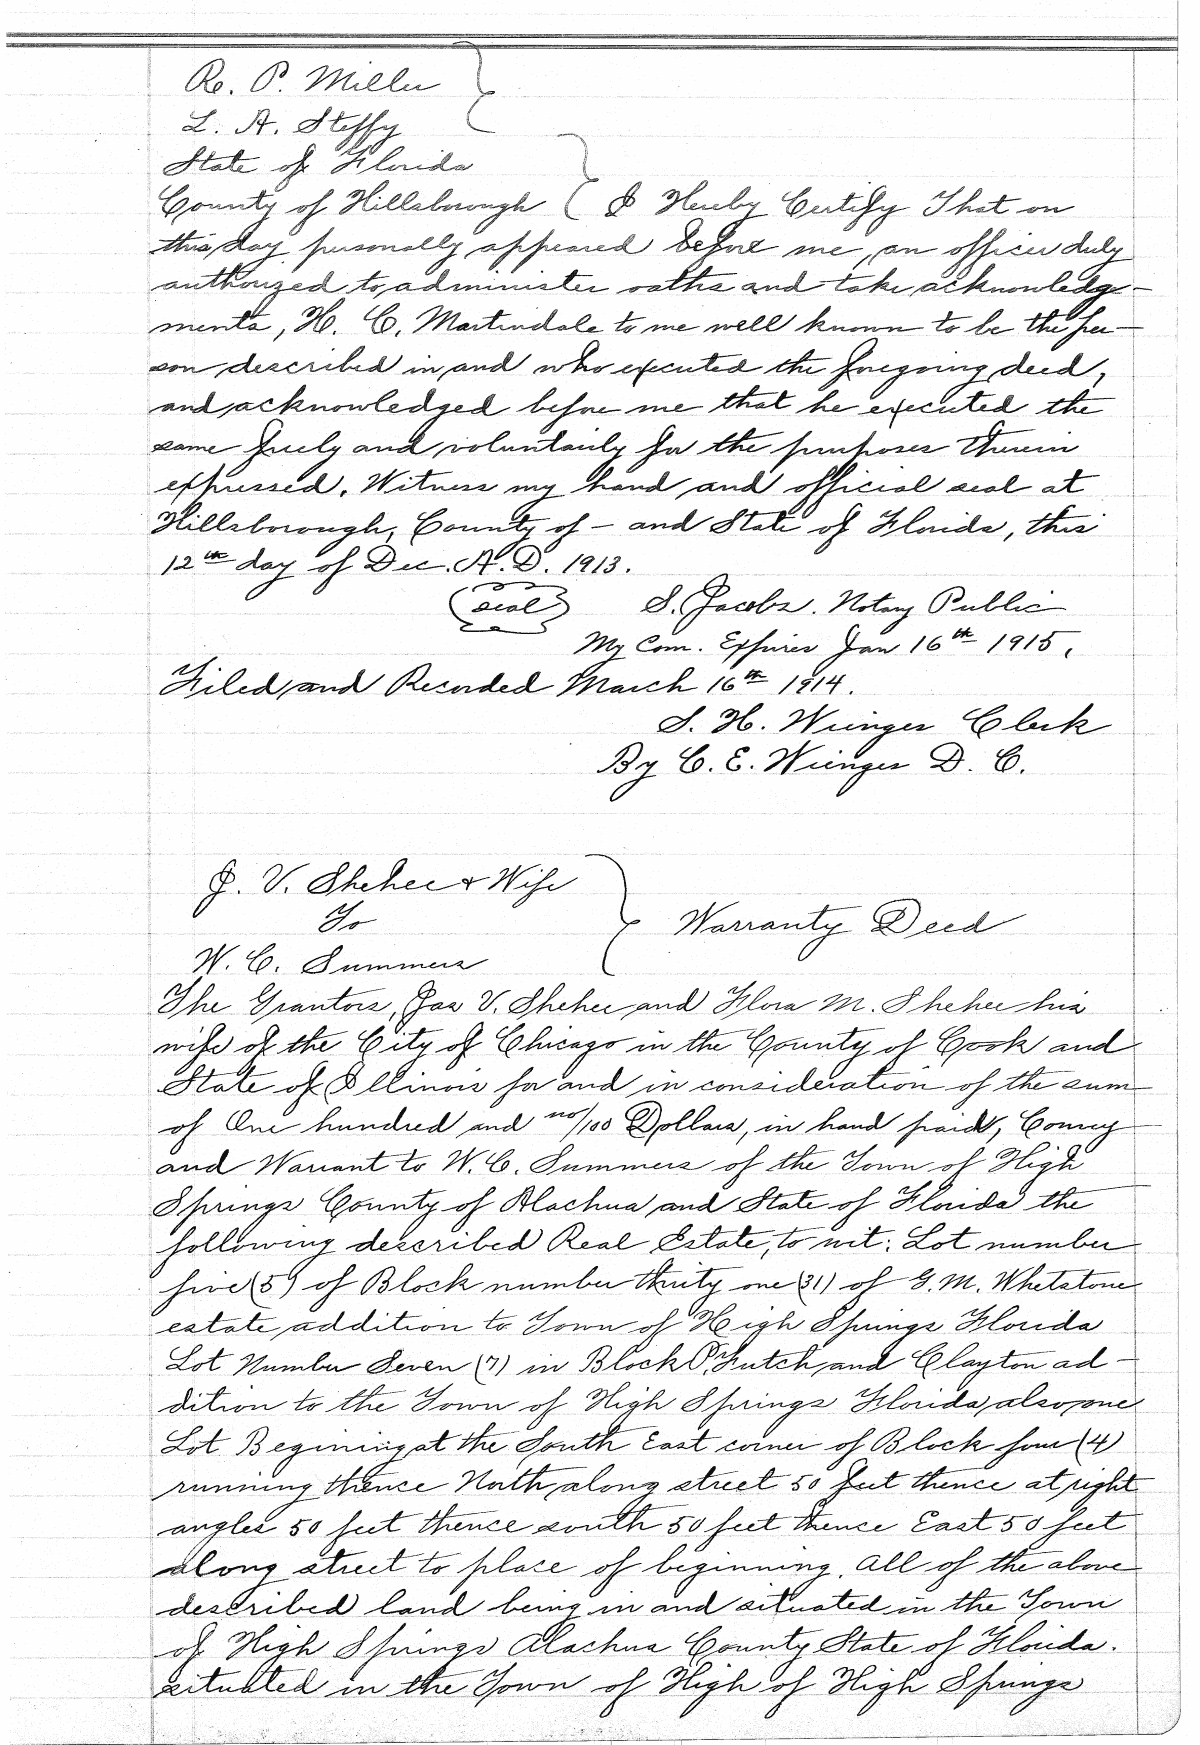 R. P. Miller
L. A. Steffy
State of Florida
County of Hillsborough ( I Hereby Certify That on
this day personally appeared before me, an officer duly
authorized to administer oaths and take acknowledge-
ments, H. C. Martindale to me well known to be the per-
son described in and who executed the foregoing deed,
and acknowledged before me that he executed the
same freely and voluntarily for the purposes therein
expressed. Witness my hand and official seal at
Hillsborough, County of - and State of Florida, this
12th day of Dec. A.D. 1913.
(seal) S. Jacobs. Notary Public
My Com. Expires Jan 16th 1915.
Filed and Recorded March 16th 1914.
S. H. Wienges Clerk
By C. E. Wienges D. C.
J. V. Shehee & Wife
To
Warranty Deed
W. C. Summers
The Grantors, Jas V. Shehee and Flora M. Shehee his
wife of the City of Chicago in the County of Cook and
State of Illinois for and in consideration of the sum
of One hundred and no/100 Dollars, in hand paid, Convey
and Warrant to W. C. Summers of the Town of High
Springs County of Alachua and State of Florida the
following described Real Estate, to wit: Lot number
five (5) of Block number thirty one (31) of G. M. Whetstone
estate addition to Town of High Springs Florida
Lot Number Seven (7) in Block P. Futch and Clayton ad-
dition to the Town of High Springs Florida, also one
Lot Begining at the South East corner of Block four (4)
running thence North along street 50 feet thence at right
angles 50 feet thence south 50 feet thence East 50 feet
along street to place of beginning. All of the above
described land being in and situated in the Town
of High Springs Alachua County State of Florida.
situated in the Town of High of High Springs